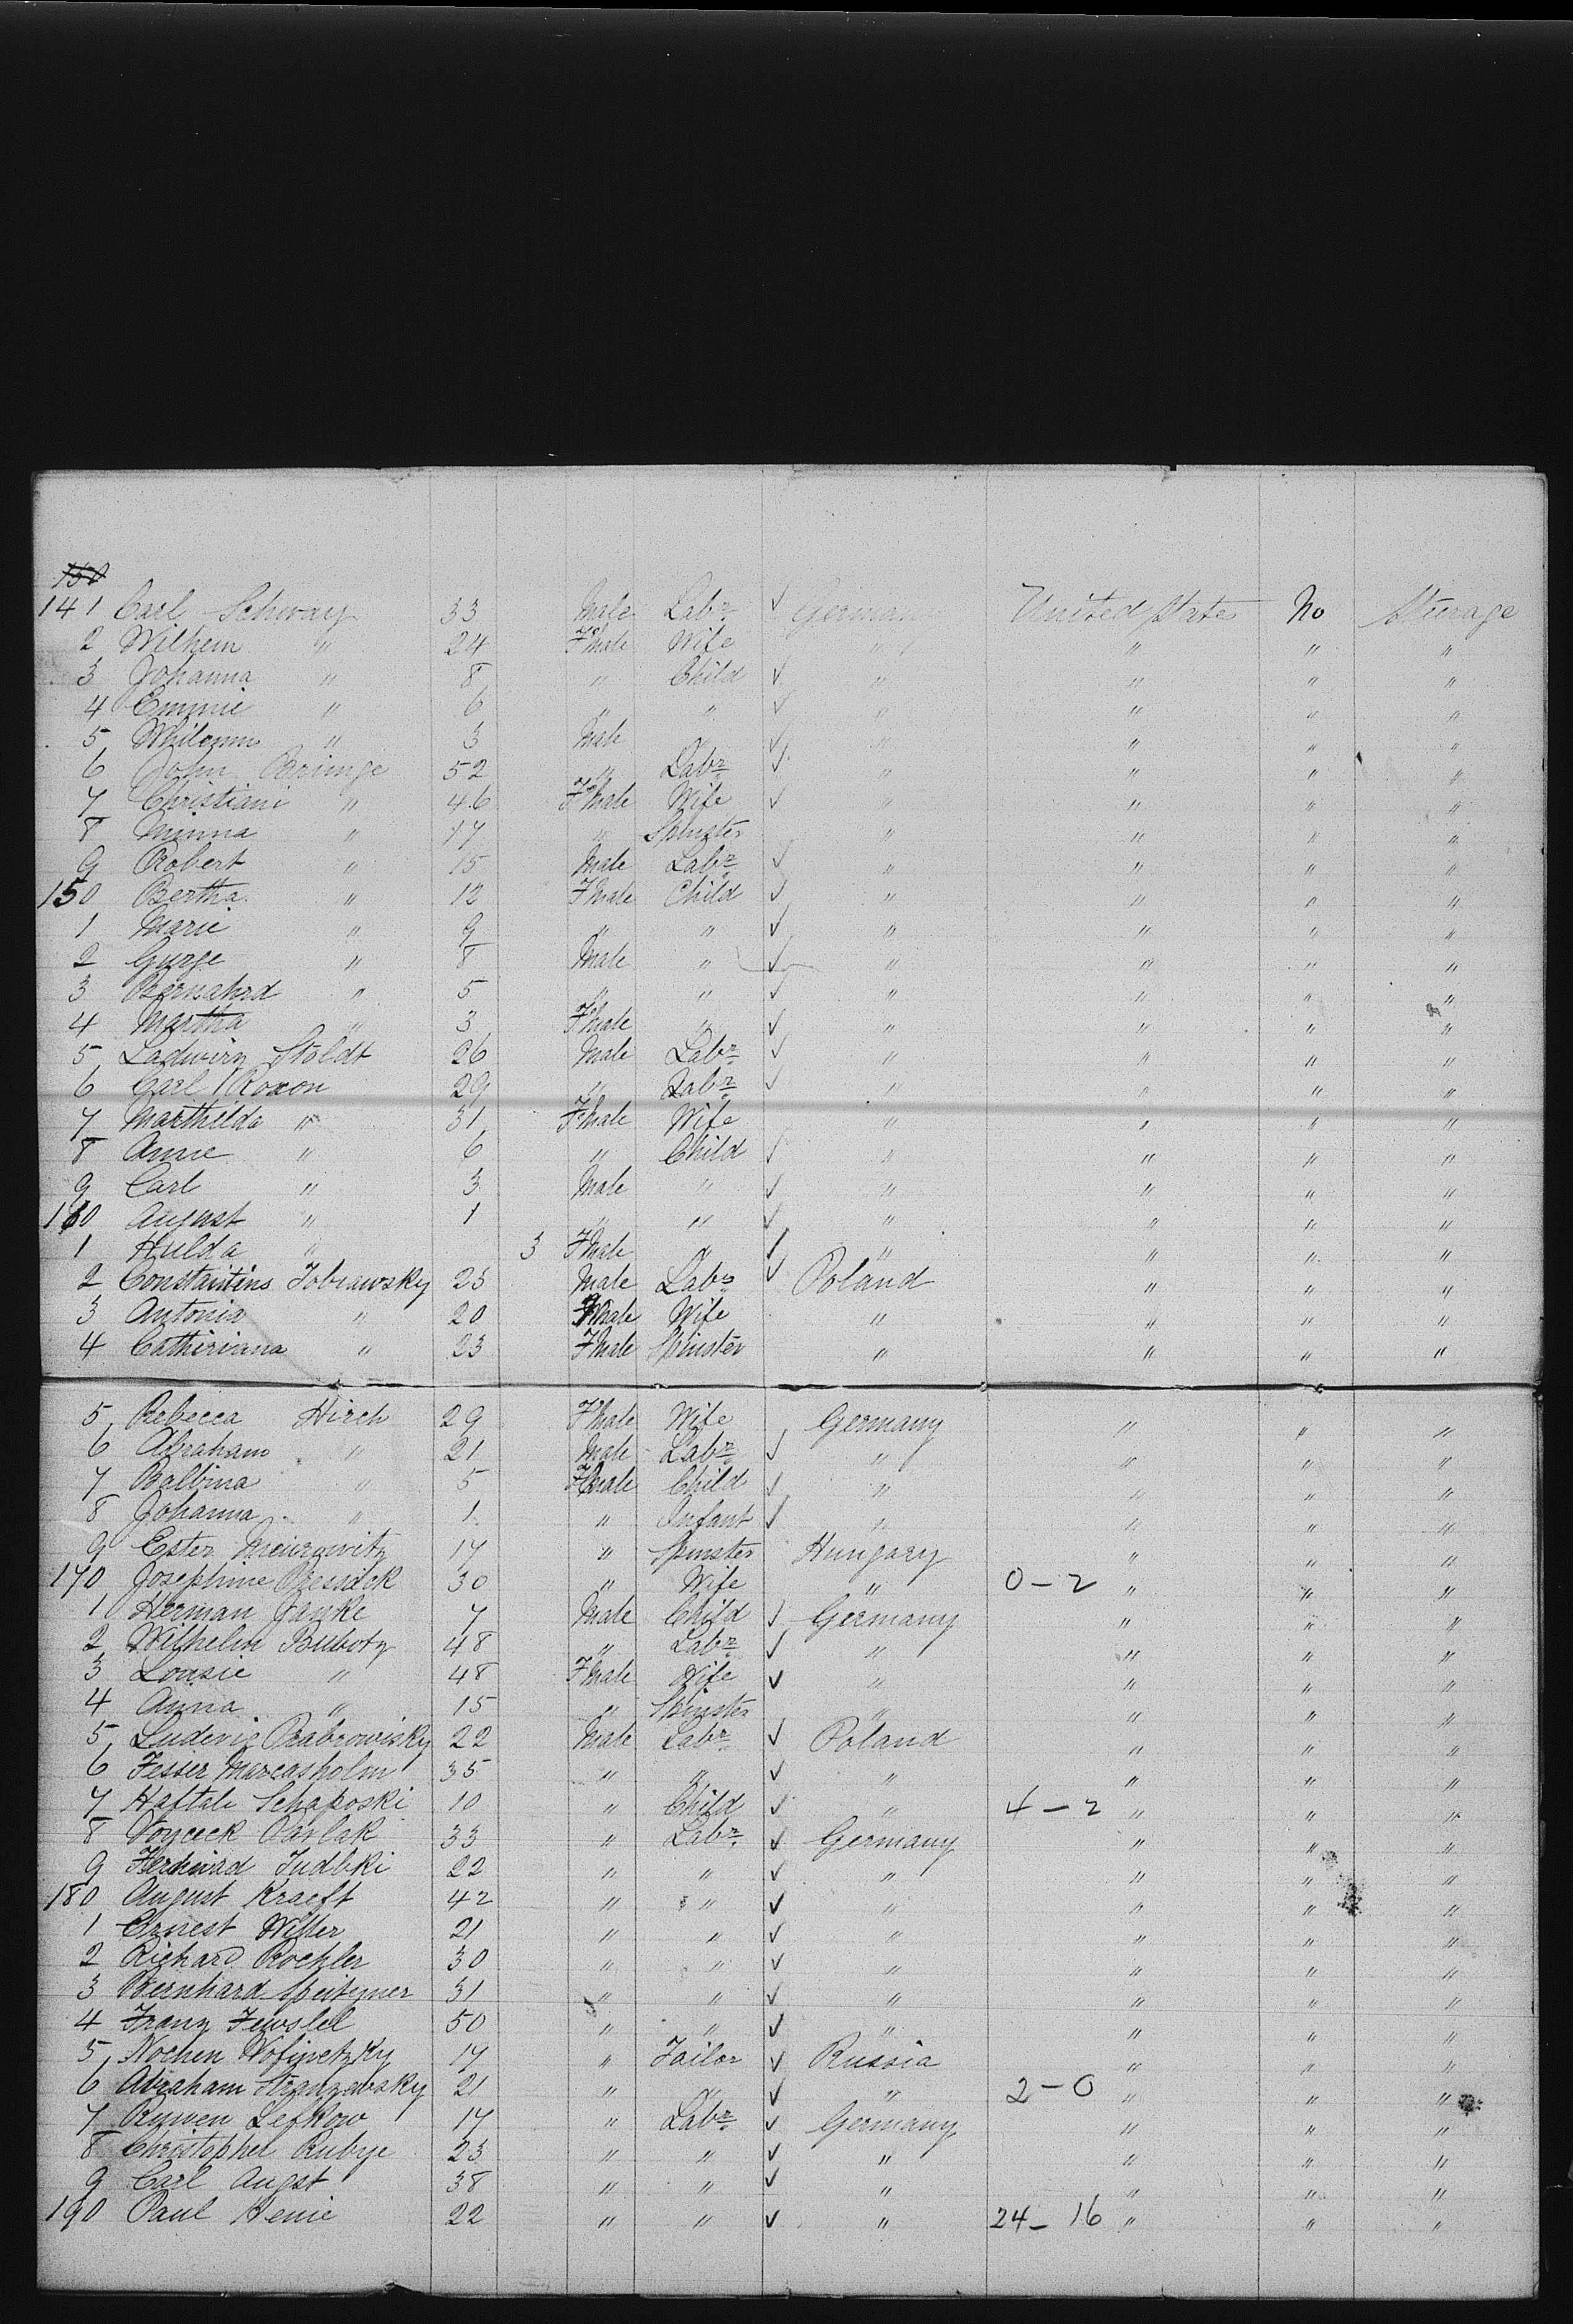 150
141 Carl Schway 33 Male Labr ✓ German United State No Steerage
2 Wilhem " 24 Fmale Wife " " " "
3 Johanna " 8 " Child ✓ " " " "
4 Emmie " 6 " " ✓ " " " "
5 Whilemm " 3 Male " ✓ " " " "
6 John Brimge 52 " Labr ✓ " " " "
7 Christiani " 46 Fmale Wife ✓ " " " "
8 Minna " 17 " Spinster " " " "
9 Robert " 15 Male Labr ✓ " " " "
150 Bertha " 12 Fmale Child ✓ " " " "
1 Marie " 9 " " ✓ " " " "
2 Gurge " 8 Male " ✓ " " " "
3 Bernahrd " 5 " " ✓ " " " "
4 Martha " 3 Fmale " ✓ " " " "
5 Ladwirn Stoldt 26 Male Labr ✓ " " " "
6 Carl Roxon 29 " Labr ✓ " " " "
7 Marthilda " 31 Fmale Wife " " " "
8 Anne " 6 " Child ✓ " " " "
9 Carl " 3 Male " ✓ " " " "
160 August " 1 " " ✓ " " " "
1 Hulda " 3 Fmale " ✓ " " " "
2 Constantins Jobrawsky 25 Male Labr ✓ Poland " " "
3 Antonia " 20 Fmale Wife " " " "
4 Cathirinna " 23 Fmale Spinster " " " "
5 Rebecca Hirch 29 Fmale Wife Germany " " "
6 Abraham " 21 Male Labr ✓ " " " "
7 Balbina " 5 Fmale Child ✓ " " " "
8 Johanna " 1 " Infant ✓ " " " "
9 Ester Meirowitz 17 " Spinster Hungary " " "
170 Josephine 30 " Wife " 0-2 " " "
1 Herman Janke 7 Male Child ✓ Germany " " "
2 Wilhelm Bubotz 48 " Labr ✓ " " " "
3 Lousie " 48 Fmale Wife ✓ " " " "
4 Anna " 15 " Spinster " " " "
5 Ludevic Rabrowisky 22 Male Labr ✓ Poland " " "
6 Fesser Marcasholm 35 " " ✓ " " " "
7 Haftali Schaposki 10 " Child ✓ " 4-2 " " "
8 Voyceck Pavlak 33 " Labr ✓ Germany " " "
9 Ferdinad Judlki 22 " " ✓ " " " "
180 August Kraeft 42 " " ✓ " " " "
1 Ernest Witter 21 " " ✓ " " " "
2 Richard Rochler 30 " " ✓ " " " "
3 Bernhard 31 " " ✓ " " " "
4 Franz 50 " " ✓ " " " "
5 Nochen 17 " Tailor ✓ Russia " " "
6 Abraham 21 " " ✓ " 2-0 " " "
7 Ruwen Lefkow 17 " Labr ✓ Germany " " "
8 Christopher Rubye 23 " " ✓ " " " "
9 Carl Augst 38 " " ✓ " " " "
190 Paul Henie 22 " " ✓ " 24-16 " " "